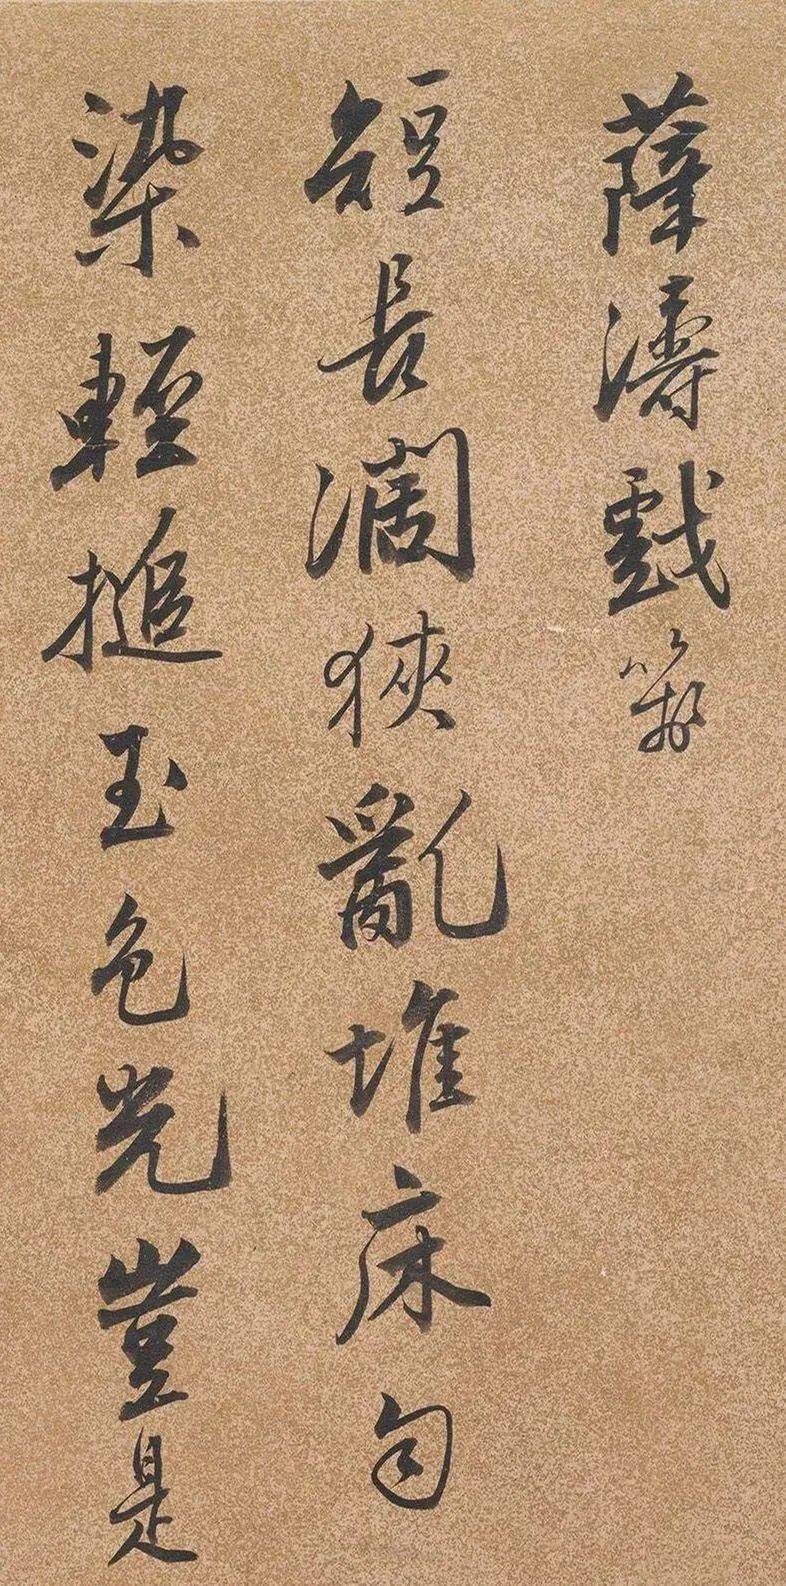 薛濤戲箋
短長濶狹亂堆床匀
染輕搥玉色光豈是